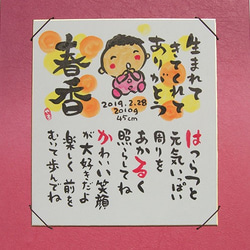 生まれて
きてくれて
ありがとう
春香
2019.2.28
2010g
45cm
はつらつと
元気いっぱい
周りを
あかるく
照らしてね
かわいい笑顔
が大好きだよ
楽しく前を
むいて歩んでね